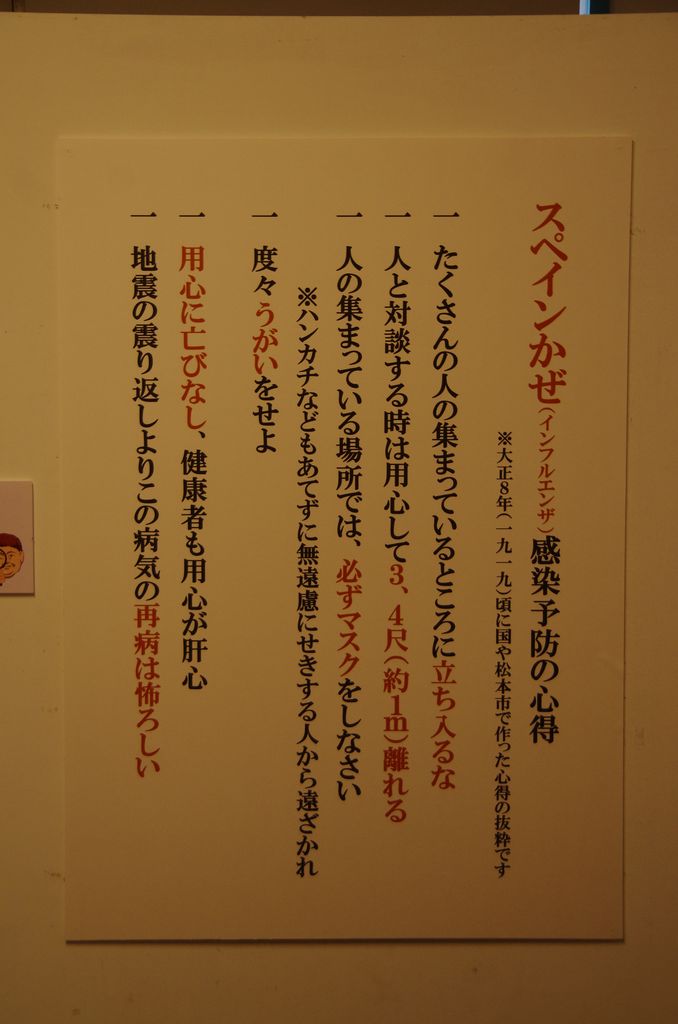 スペインかぜ(インフルエンザ)感染予防の心得
※大正8年(一九一九)頃に国や松本市で作った心得の抜粋です
一 たくさんの人の集まっているところに立ち入るな
一 人と対談する時は用心して3、4尺(約1m)離れる
一 人の集まっている場所では、必ずマスクをしなさい
※ハンカチなどもあてずに無遠慮にせきする人から遠ざかれ
一 度々うがいをせよ
一 用心に亡びなし、健康者も用心が肝心
一 地震の震り返しよりこの病気の再病は怖ろしい